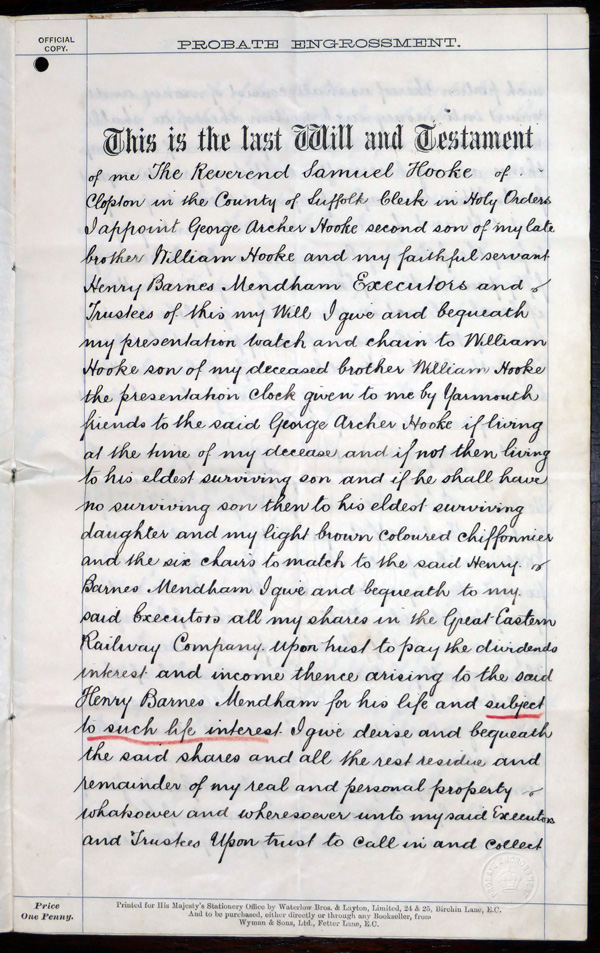 OFFICIAL
COPY.
PROBATE ENGROSSMENT.
This is the last Will and Testament
of me The Reverend Samuel Hooke of
Clopton in the County of Suffolk Clerk in Holy Orders
I appoint George Archer Hooke second son of my late
brother William Hooke and my faithful servant
Henry Barnes Mendham Executors and
Trustees of this my Will I give and bequeath
my presentation watch and chain to William
Hooke son of my deceased brother William Hooke
the presentation clock given to me by Yarmouth
friends to the said George Archer Hooke if living
at the time of my decease and if not then living
to his eldest surviving son and if he shall have
no surviving son then to his eldest surviving
daughter and my light brown coloured chiffonnier
and the six chairs to match to the said Henry
Barnes Mendham I give and bequeath to my
said Executors all my shares in the Great Eastern
Railway Company. Upon trust to pay the dividends
interest and income thence arising to the said
Henry Barnes Mendham for his life and subject
to such life interest I give devise and bequeath
the said shares and all the rest residue and
remainder of my real and personal property
whatsoever and wheresoever unto my said Executors
and Trustees Upon trust to call in and collect
Price
One Penny.
Printed for His Majesty's Stationery Office by Waterlow Bros. & Layton, Limited, 24 & 25, Birchin Lane, E.C.
And to be purchased, either directly or through any Bookseller, from
Wyman & Sons, Ltd., Fetter Lane, E.C.